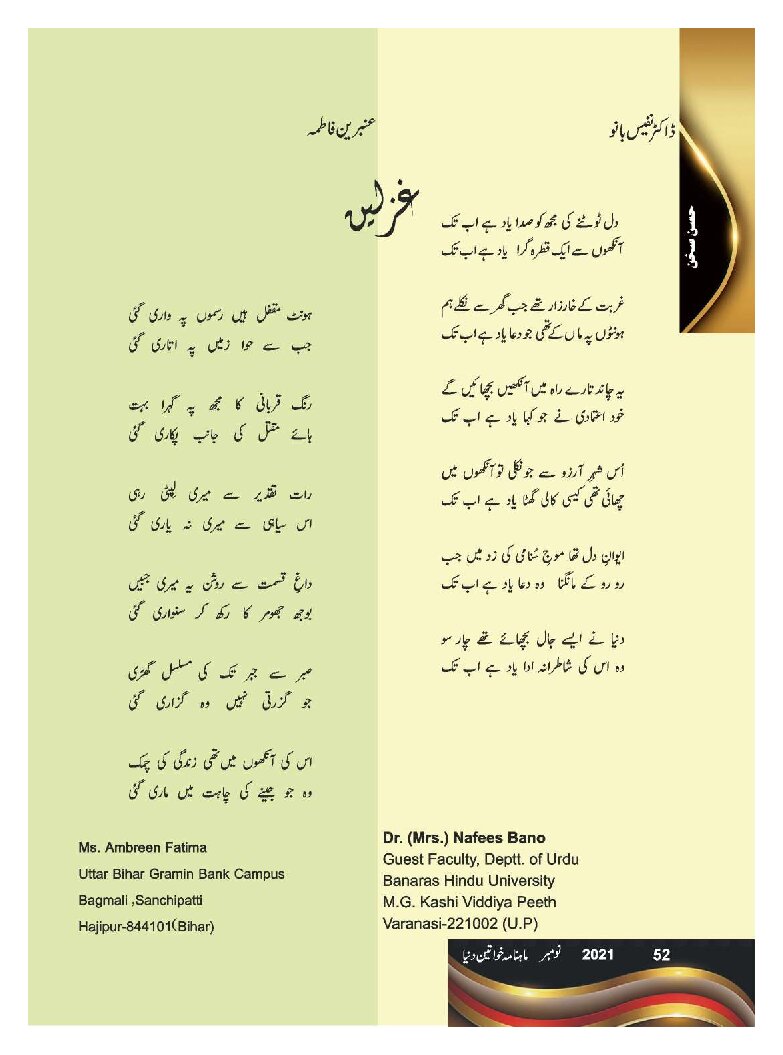 حسن سخن
ڈاکٹر نفیس بانو
عنبرین فاطمہ
غزلیں
دل ٹوٹنے کی مجھ کو صدا یاد ہے اب تک
آنکھوں سے ایک قطرہ گرا یاد ہے اب تک
غربت کے خارزار تھے جب گھر سے نکلے ہم
ہونٹوں پہ ماں کے تھی جو دعا یاد ہے اب تک
یہ چاند تارے راہ میں آنکھیں بچھائیں گے
خود اعتمادی نے جو کہا یاد ہے اب تک
اُس شہرِ آرزو سے جو نکلی تو آنکھوں میں
چھائی تھی کیسی کالی گھٹا یاد ہے اب تک
ایوانِ دل تھا موجِ سُنامی کی زد میں جب
رو رو کے مانگنا وہ دعا یاد ہے اب تک
دنیا نے ایسے جال بچھائے تھے چار سو
وہ اس کی شاطرانہ ادا یاد ہے اب تک
Dr. (Mrs.) Nafees Bano
Guest Faculty, Deptt. of Urdu
Banaras Hindu University
M.G. Kashi Viddiya Peeth
Varanasi-221002 (U.P)
ہونٹ مقفل ہیں رسموں پہ واری گئی
جب سے حوا زمیں پہ اتاری گئی
رنگ قربانی کا مجھ پہ گہرا بہت
ہائے مقتل کی جانب پکاری گئی
رات تقدیر سے میری لپٹی رہی
اس سیاہی سے میری نہ یاری گئی
داغِ قسمت سے روشن یہ میری جبیں
بوجھ جھومر کا رکھ کر سنواری گئی
صبر سے جبر تک کی مسلسل گھڑی
جو گزرتی نہیں وہ گزاری گئی
اس کی آنکھوں میں تھی زندگی کی چمک
وہ جو جینے کی چاہت میں ماری گئی
Ms. Ambreen Fatima
Uttar Bihar Gramin Bank Campus
Bagmali ,Sanchipatti
Hajipur-844101(Bihar)
ماہنامہ خواتین دنیا نومبر 2021 52